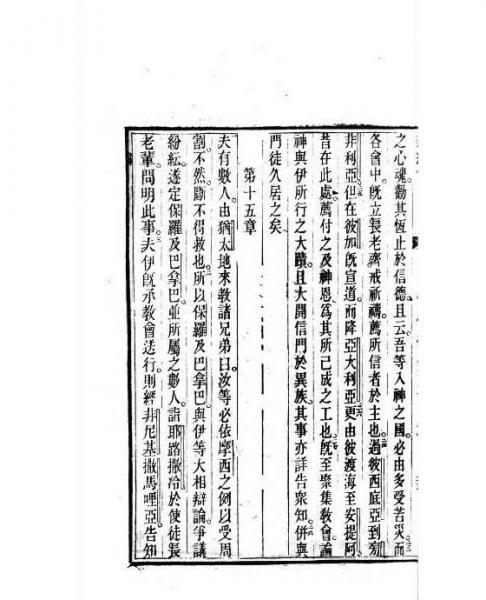 之心魂勸其恆止於信德且云吾等入神之國必由多受苦災而
各會中既立長老齋戒祈禱薦所信者於主也過彼西底亞到旁
非利亞但在彼加既宣道而降亞大利亞更由彼渡海至安提阿
昔在此處薦付之及神恩為其所已成之工也既至聚集教會論
神與伊所行之大蹟且大開信門於異族其事亦詳告衆知併與
門徒久居之矣
第十五章
夫有數人由猶太地來教諸兄弟曰汝等必依摩西之例以受周
割不然斷不得救也所以保羅及巴拿巴與伊等大相辯論爭議
紛紜遂定保羅及巴拿巴並所屬之數人詣耶路撒冷於使徒長
老輩問明此事夫伊既承教會送行則經非尼基撒馬哩亞告知